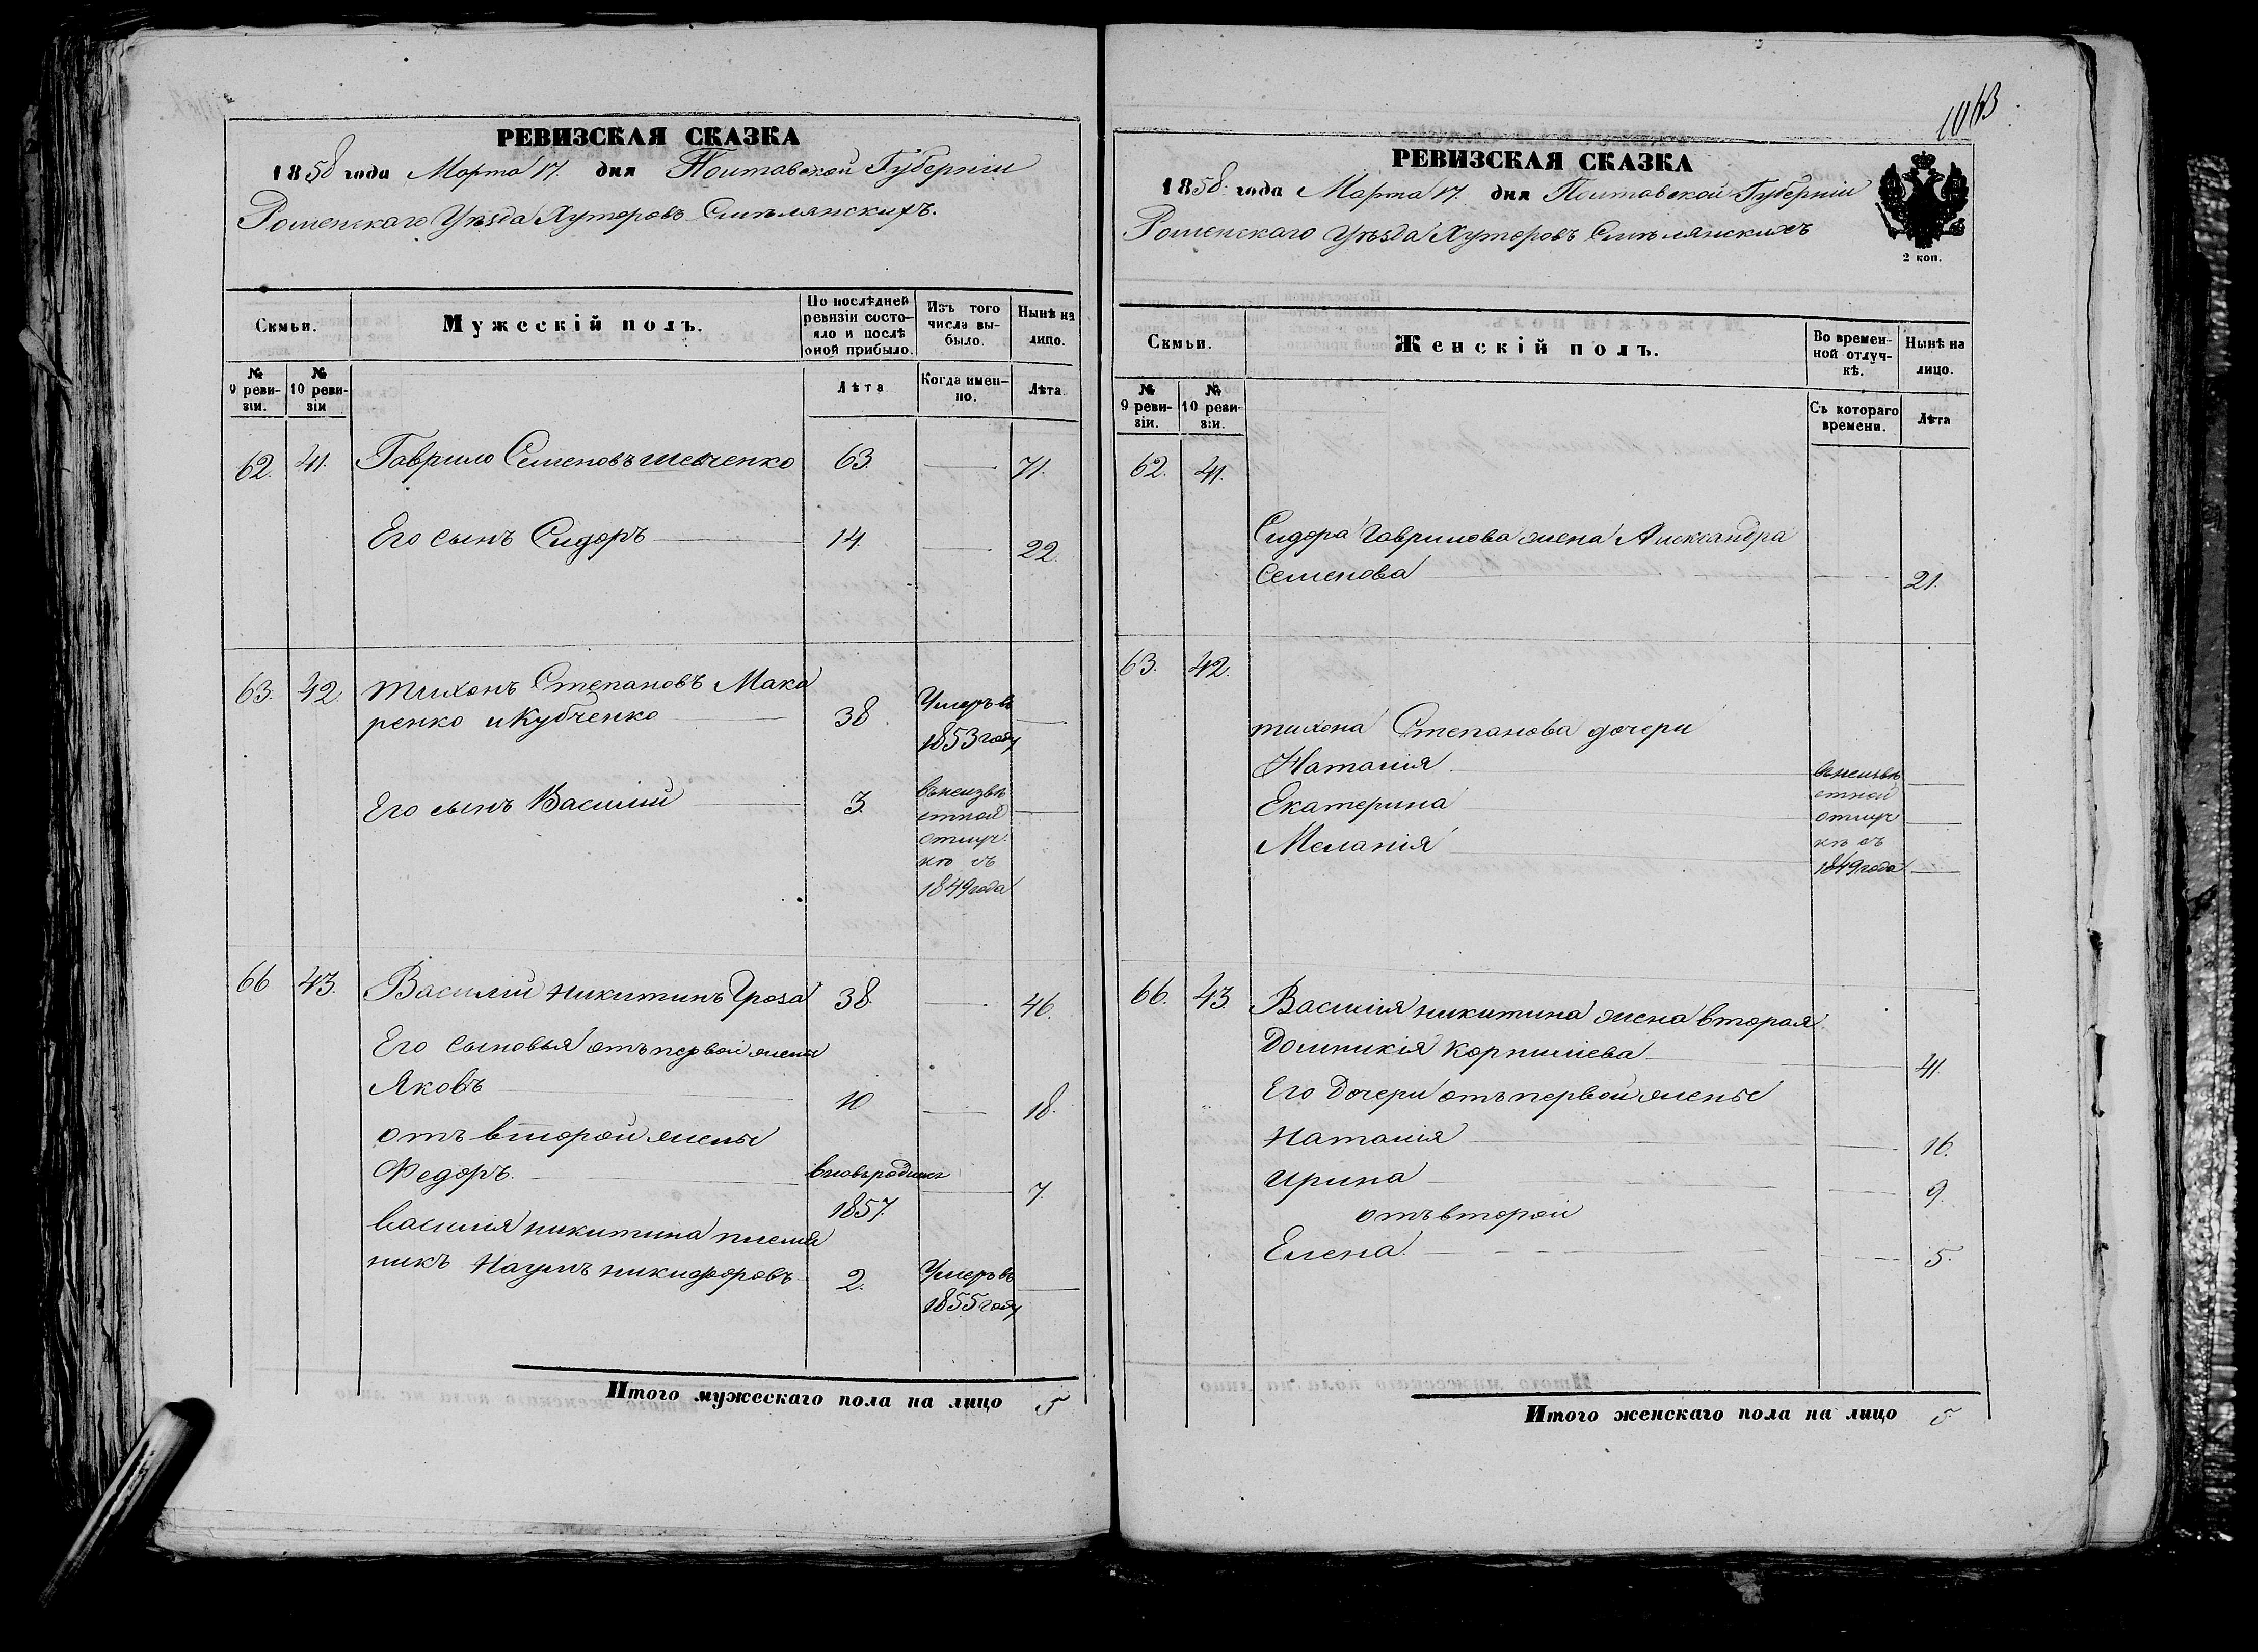 РЕВИЗСКАЯ СКАЗКА
1858 года Марта 17. дня Полтавской Губерніи
Роменскаго Уѣзда Хуторовъ Смѣлянскихъ.
Семьи.
Мужескій полъ.
По послѣдней ревизіи состо-
яло и послѣ оной прибыло.
Изъ того числа вы-
было.
Нынѣ на лицо.
№ 9 реви-
зіи.
№ 10 реви-
зіи
Лѣта
Когда имен-
но.
Лѣта.
62. 41. Гаврило Семеновъ Шевченко 63. 71.
Его сынъ Сидоръ 14. 22.
63. 42. Тихонъ Степановъ Мака
ренко и Кубченко 38. Умеръ въ
1853 году
Его сынъ Василій 3. въ неизвѣ
стной
отлуч
кѣ съ
1849 года
66 43. Василій Никитинъ Гроза 38. 46.
Его сыновья отъ первой жены
Яковъ 10 18.
отъ второй жены
Федоръ. вновь родился 7.
1857.
Василія Никитина племя
никъ Наумъ Никифоровъ 2. Умеръ въ
1855 году
Итого мужескаго пола на лицо 5
1043
РЕВИЗСКАЯ СКАЗКА
1858. года Марта 17. дня Полтавской Губерніи
Роменскаго Уѣзда Хуторовъ Смѣлянскихъ
2 коп.
Семьи.
Женскій полъ.
Во времен-
ной отлуч-
кѣ.
Нынѣ на лицо.
№ 9 реви-
зіи.
№ 10 реви-
зіи.
Съ котораго времени.
Лѣта
62. 41.
Сидора Гаврилова жена Александра
Семенова 21.
63. 42.
Тихона Степанова дочери
Наталія въ неизвѣ
Екатерина стной
отлуч
Меланія кѣ съ
1849 года
66. 43. Василія Никитина жена вторая
Домникія Корнилiева 41
Его дочери отъ первой жены
Наталія 16.
Ирина 9.
отъ второй
Елена. 5.
Итого женскаго пола на лицо 5